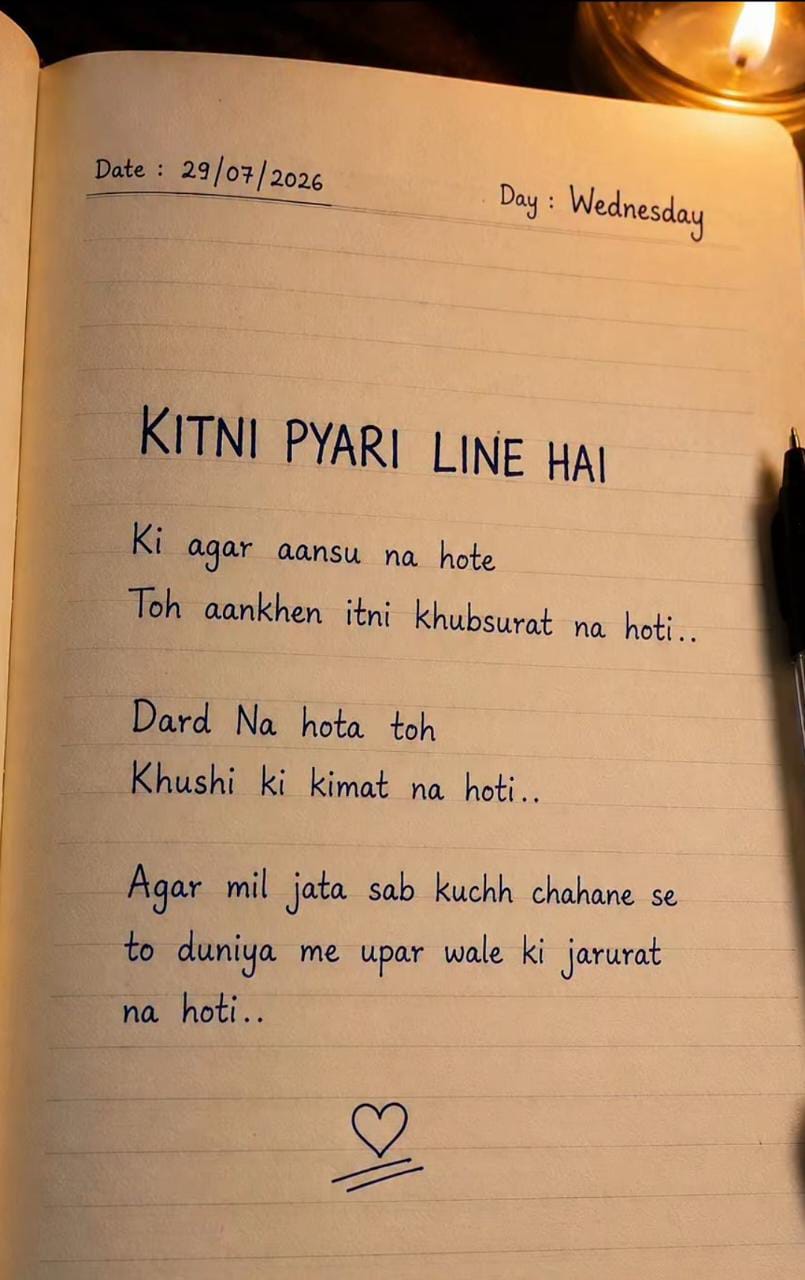 Date : 29/07/2026
Day : Wednesday
KITNI PYARI LINE HAI
Ki agar aansu na hote
Toh aankhen itni khubsurat na hoti..
Dard Na hota toh
Khushi ki kimat na hoti..
Agar mil jata sab kuchh chahane se
to duniya me upar wale ki jarurat
na hoti..